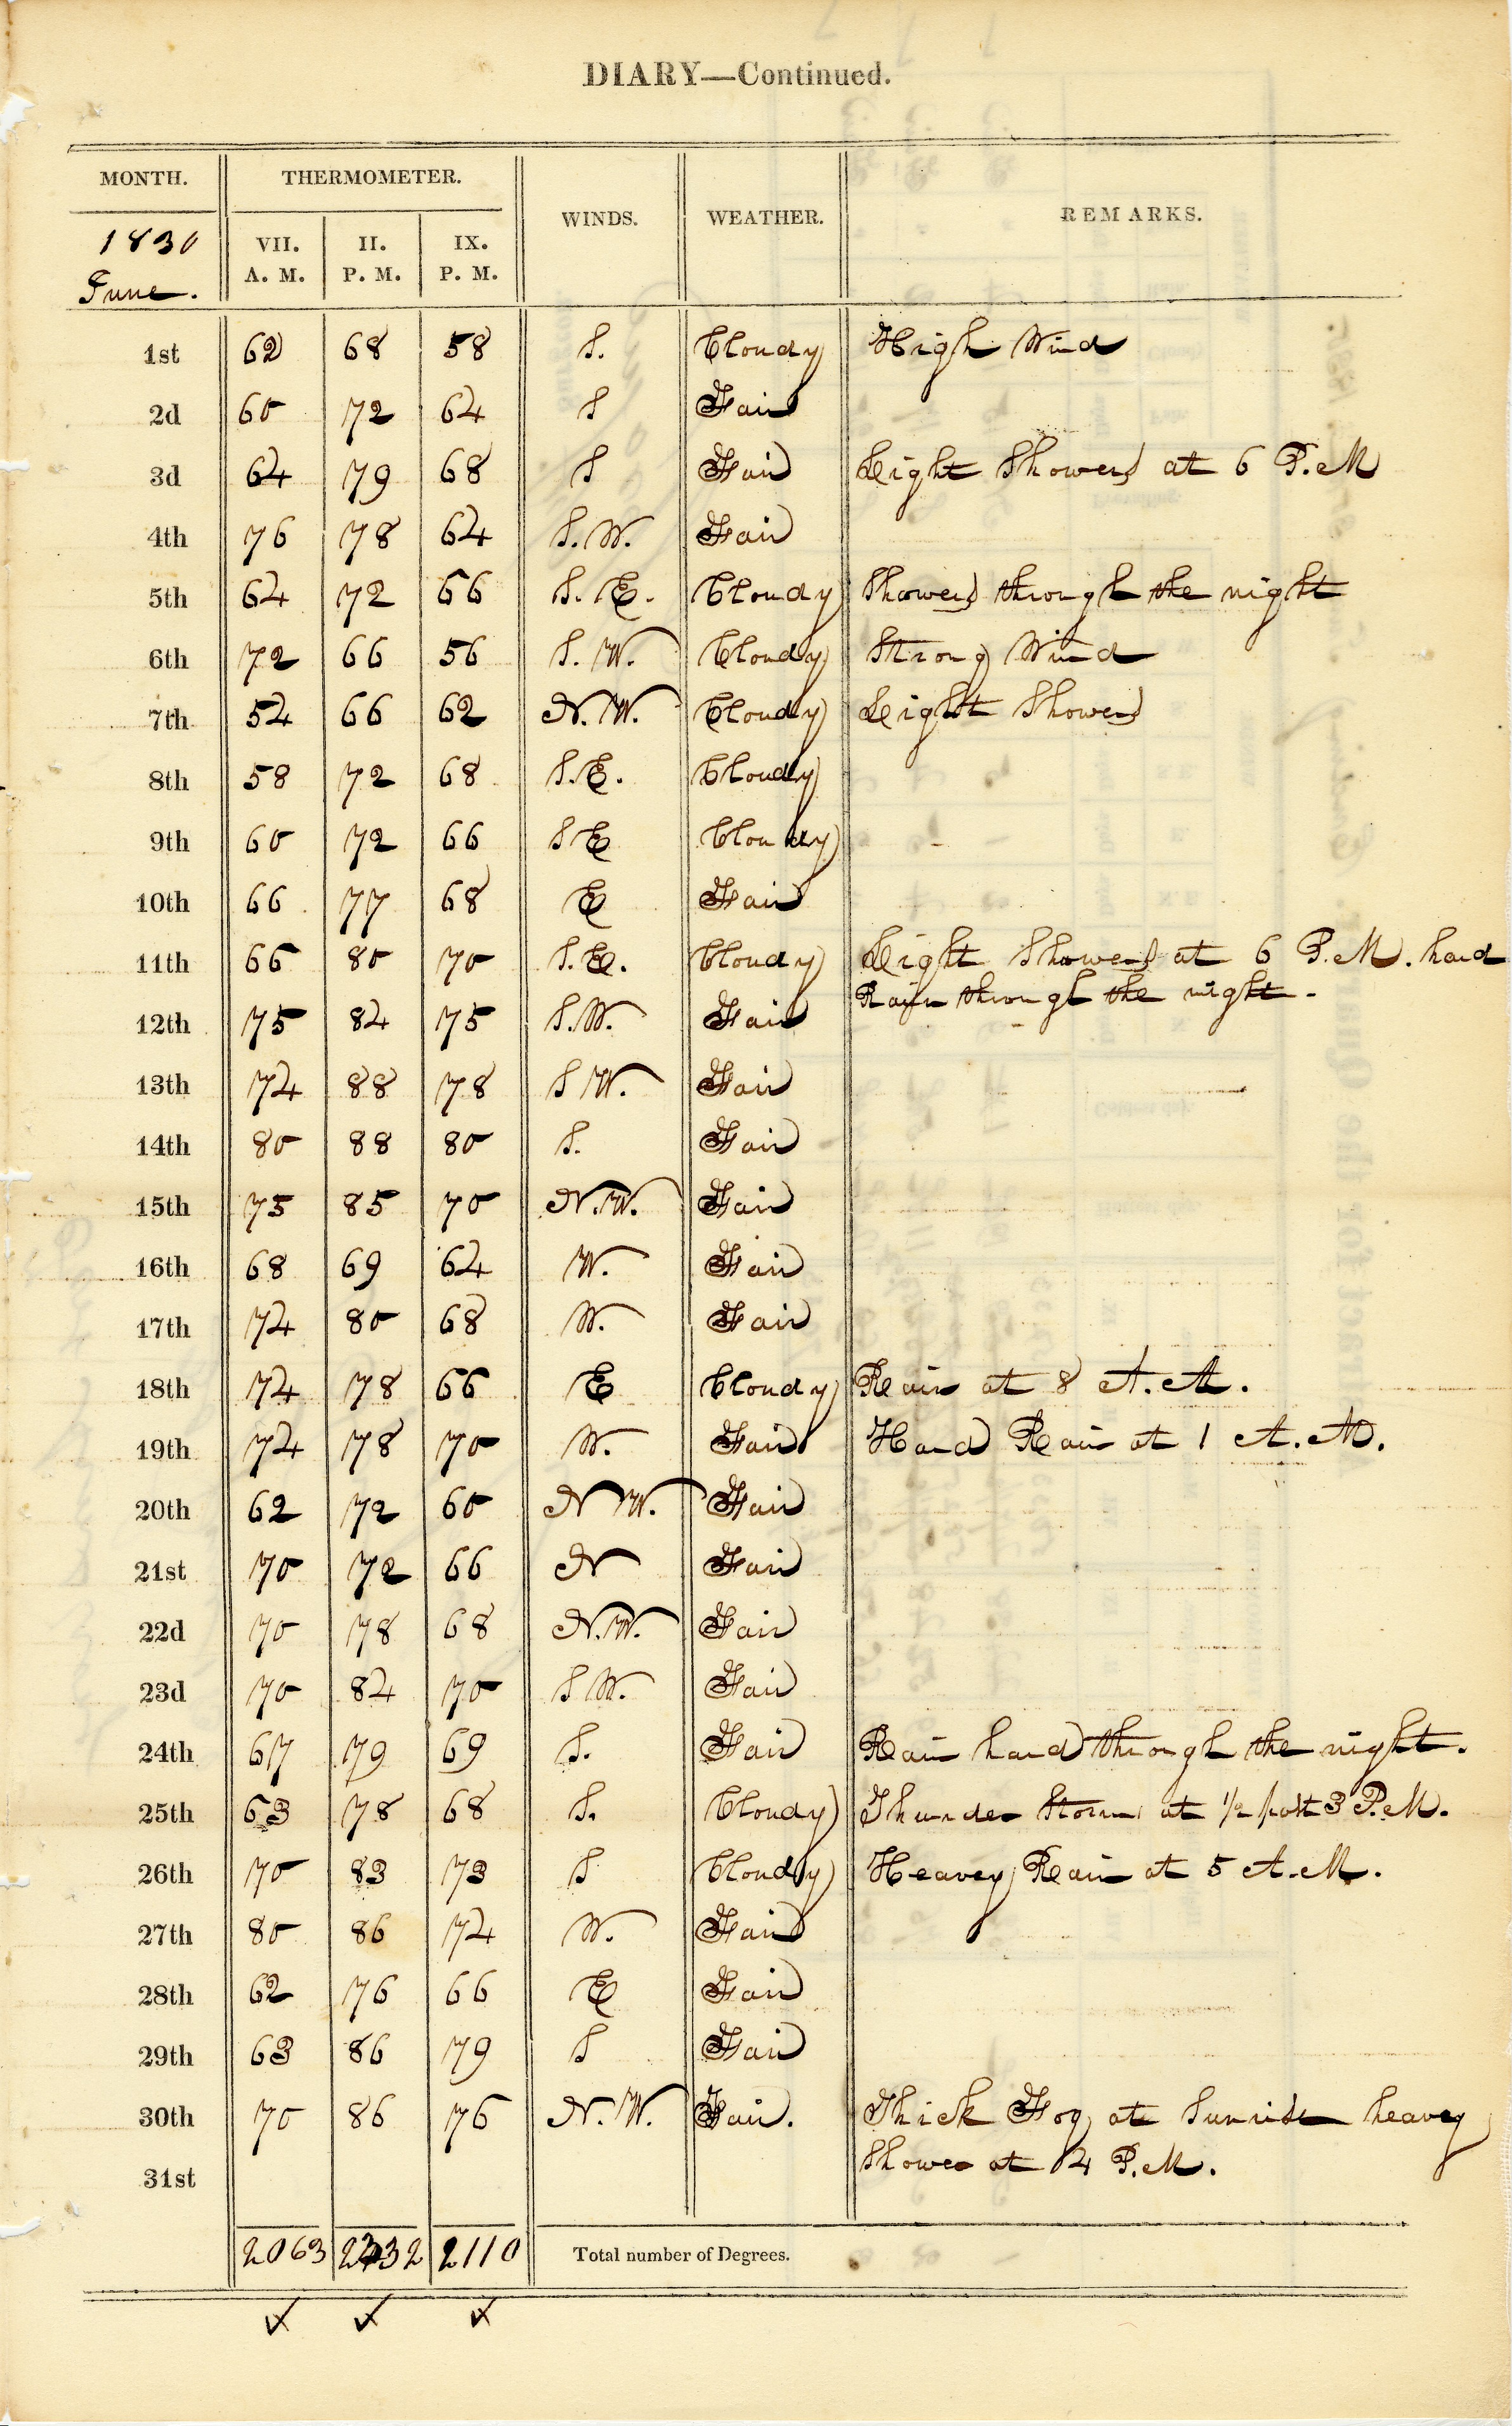 DIARY—Continued.
MONTH. THERMOMETER. WINDS. WEATHER. REMARKS.
1830 VII. II. IX.
June. A. M. P. M. P. M.
1st 62 68 58 S. Cloudy High Wind
2d 60 72 64 S Fair
3d 64 79 68 S Fair Light Showers at 6 P.M
4th 76 78 64 S.W. Fair
5th 64 72 66 S.E. Cloudy Showers through the night
6th 72 66 56 S.W. Cloudy Strong Wind
7th 54 66 62 N.W. Cloudy Light Showers
8th 58 72 68 S.E. Cloudy
9th 60 72 66 S E Cloudy
10th 66 77 68 E Fair
11th 66 80 70 S.E. Cloudy Light Showers at 6 P.M. hard
Rain through the night.
12th 75 84 75 S.W. Fair
13th 74 88 78 S W. Fair
14th 80 88 80 S. Fair
15th 75 85 70 N.W. Fair
16th 68 69 64 W. Fair
17th 74 80 68 W. Fair
18th 74 78 66 E Cloudy Rain at 8 A.M.
19th 74 78 70 W. Fair Hard Rain at 1 A.M.
20th 62 72 60 N W. Fair
21st 70 72 66 N Fair
22d 70 78 68 N.W. Fair
23d 70 84 70 S W. Fair
24th 67 79 69 S. Fair Rain hard through the night.
25th 63 78 68 S. Cloudy Thunder Storm at ½ past 3 P.M.
26th 70 83 73 S Cloudy Heavey Rain at 5 A.M.
27th 80 86 74 W. Fair
28th 62 76 66 E Fair
29th 63 86 79 S Fair
30th 70 86 76 N.W. Fair. Thick Fog at Sunrise heavey
Shower at 4 P.M.
31st
2063 2332 2110 Total number of Degrees.